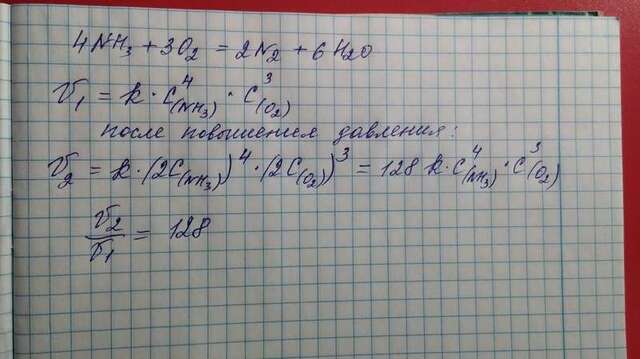 4NH₃ + 3O₂ = 2N₂ + 6H₂O
V₁ = k · C⁴(NH₃) · C³(O₂)
после повышения давления:
V₂ = k · (2C(NH₃))⁴ · (2C(O₂))³ = 128 k · C⁴(NH₃) · C³(O₂)
V₂/V₁ = 128